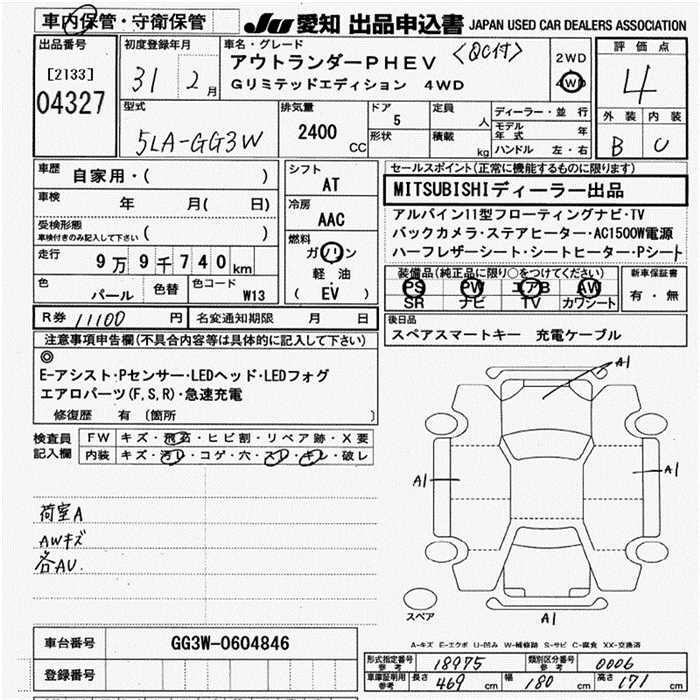 車内保管・守衛保管
JU 愛知 出品申込書 JAPAN USED CAR DEALERS ASSOCIATION
出品番号
[2133]
04327
初度登録年月
31 2月
車名・グレード
アウトランダーPHEV <QC付>
Gリミテッドエディション 4WD
2WD
4WD
評価点
4
外装 内装
B C
型式
5LA-GG3W
排気量
2400 CC
ドア
5
形状
定員
人
積載
kg
ディーラー・並行
モデル年式 年
ハンドル 左・右
車歴
自家用・( )
車検
年 月( 日)
受検形態
車検付きのみ記入して下さい ( )
走行
9万9千740km
色
パール
色替
色コード
W13
シフト
AT
冷房
AAC
燃料
ガソリン
軽油
( EV )
セールスポイント(正常に機能するものに限ります)
MITSUBISHIディーラー出品
アルパイン11型フローティングナビ・TV
バックカメラ・ステアヒーター・AC1500W電源
ハーフレザーシート・シートヒーター・Pシート
装備品(純正品に限り○をつけてください)
PS PW エアB AW
SR ナビ TV カワシート
新車保証書
有・無
R券 11100 円
名変通知期限 月 日
後日品
スペアスマートキー 充電ケーブル
注意事項申告欄(不具合内容等は具体的に記入して下さい)
◎
E-アシスト・Pセンサー・LEDヘッド・LEDフォグ
エアロパーツ(F,S,R)・急速充電
修復歴 有 〔箇所 〕
検査員記入欄
FW キズ・飛石・ヒビ割・リペア跡・X要
内装 キズ・汚レ・コゲ・穴・スレ・キレ・破レ
荷室A
AWキズ
各AU.
A1
A1
A1
A1
スペア
A-キズ E-エクボ U-凹み W-補修跡 S-サビ C-腐食 XX-交換済
車台番号
GG3W-0604846
登録番号
形式指定番号参考 18975
類別区分番号参考 0006
車庫証明用参考 長さ 469 cm 幅 180 cm 高さ 171 cm